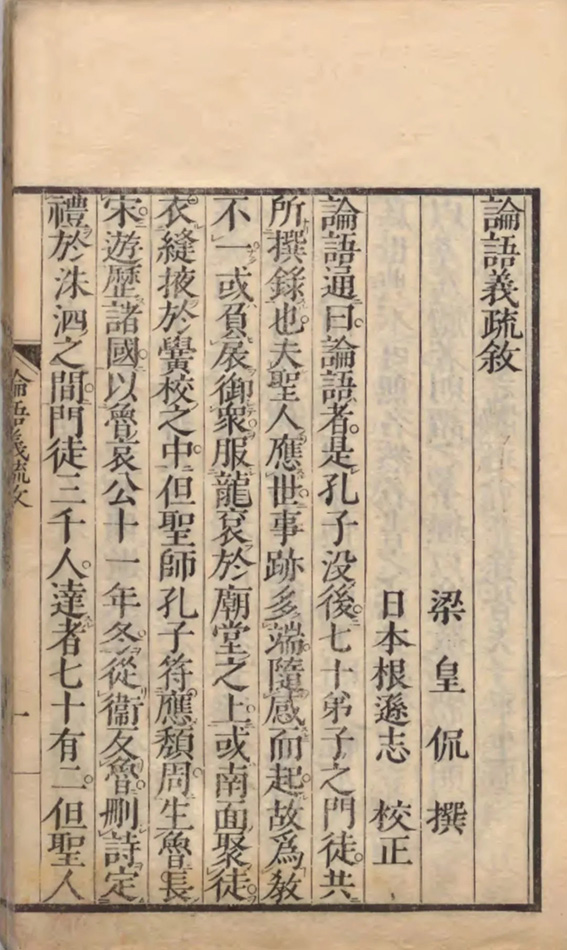 論語義疏敘
梁皇侃撰
日本根遜志校正
論語通曰論語者是孔子没後七十弟子之門徒共
所撰錄也夫聖人應世事跡多端隨感而起故爲敎
不一或負扆御衆服龍衮於廟堂之上或南面聚徒
衣縫掖於黌校之中但聖師孔子符應頽周生魯長
宋遊歷諸國以魯哀公十一年冬從衞反魯刪詩定
禮於洙泗之間門徒三千人達者七十有二但聖人
論語義疏敘
一